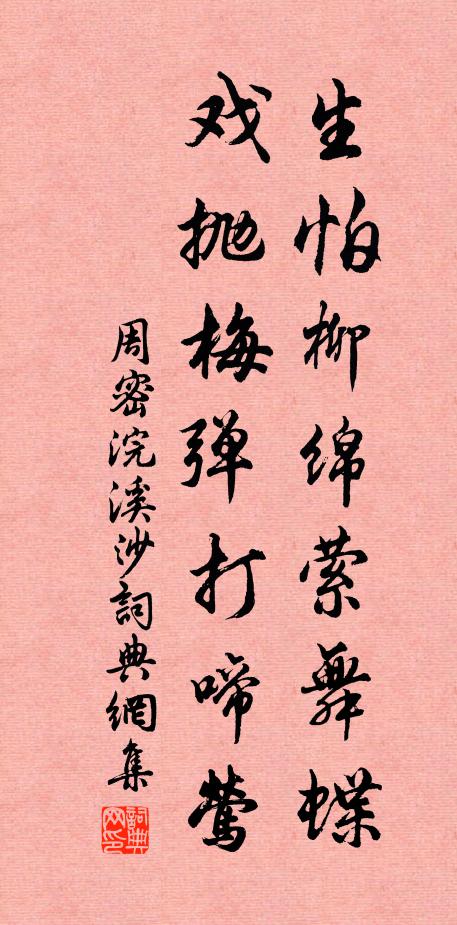 生怕柳绵萦舞蝶
戏抛梅弹打啼莺
周密浣溪沙詞典網集
詞典网印